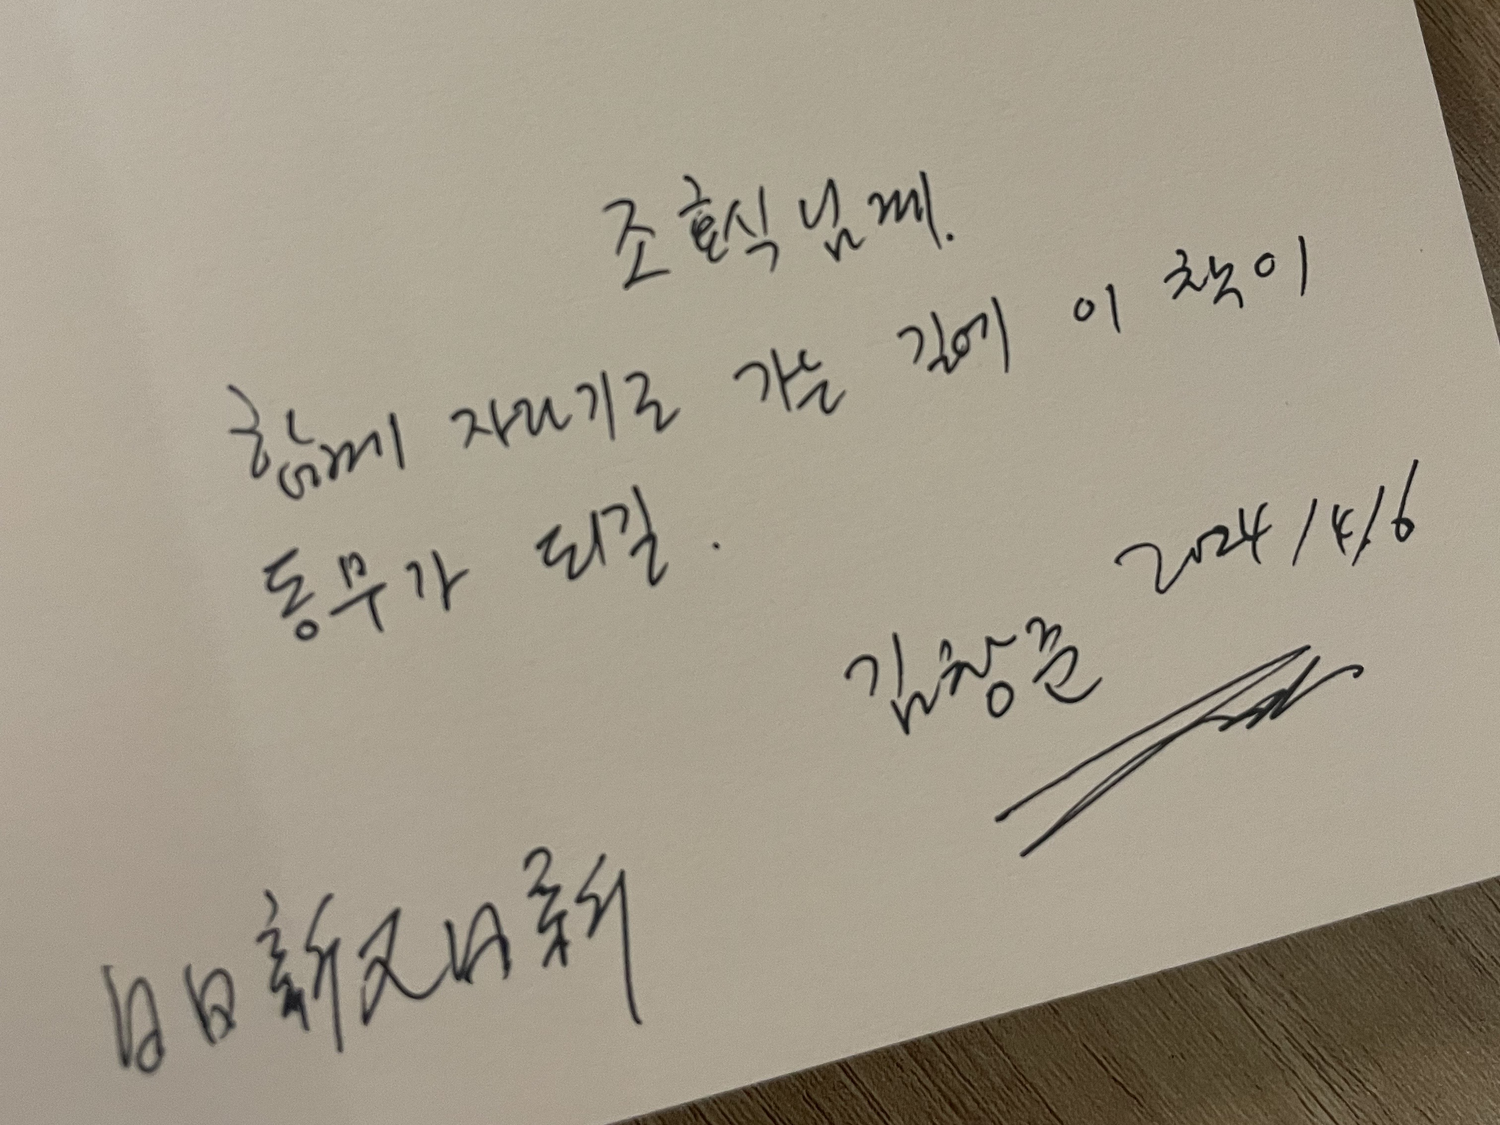 조효식 님께.
함께 자라기로 가는 길에 이 책이
동무가 되길.
2024/4/6
김창준
日日新又日新